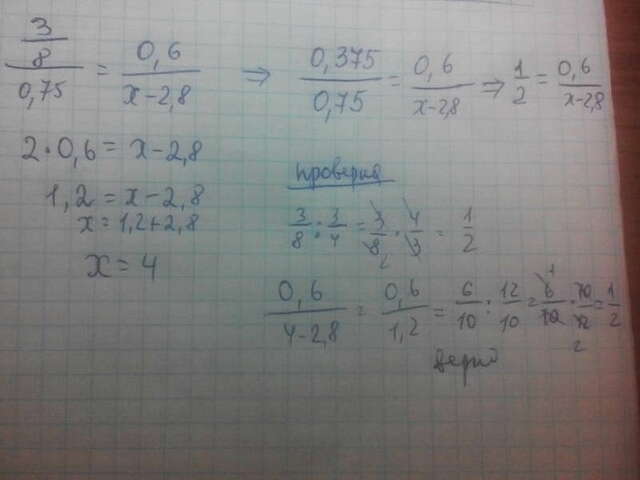 3/8 / 0,75 = 0,6 / x-2,8 ⇒ 0,375 / 0,75 = 0,6 / x-2,8 ⇒ 1/2 = 0,6 / x-2,8
2·0,6 = x-2,8
1,2 = x-2,8
x = 1,2+2,8
x = 4
проверка
3/8 : 3/4 = 3/8 · 4/3 = 1/2
0,6 / 4-2,8 = 0,6 / 1,2 = 6/10 : 12/10 = 6/10 · 10/12 = 1/2